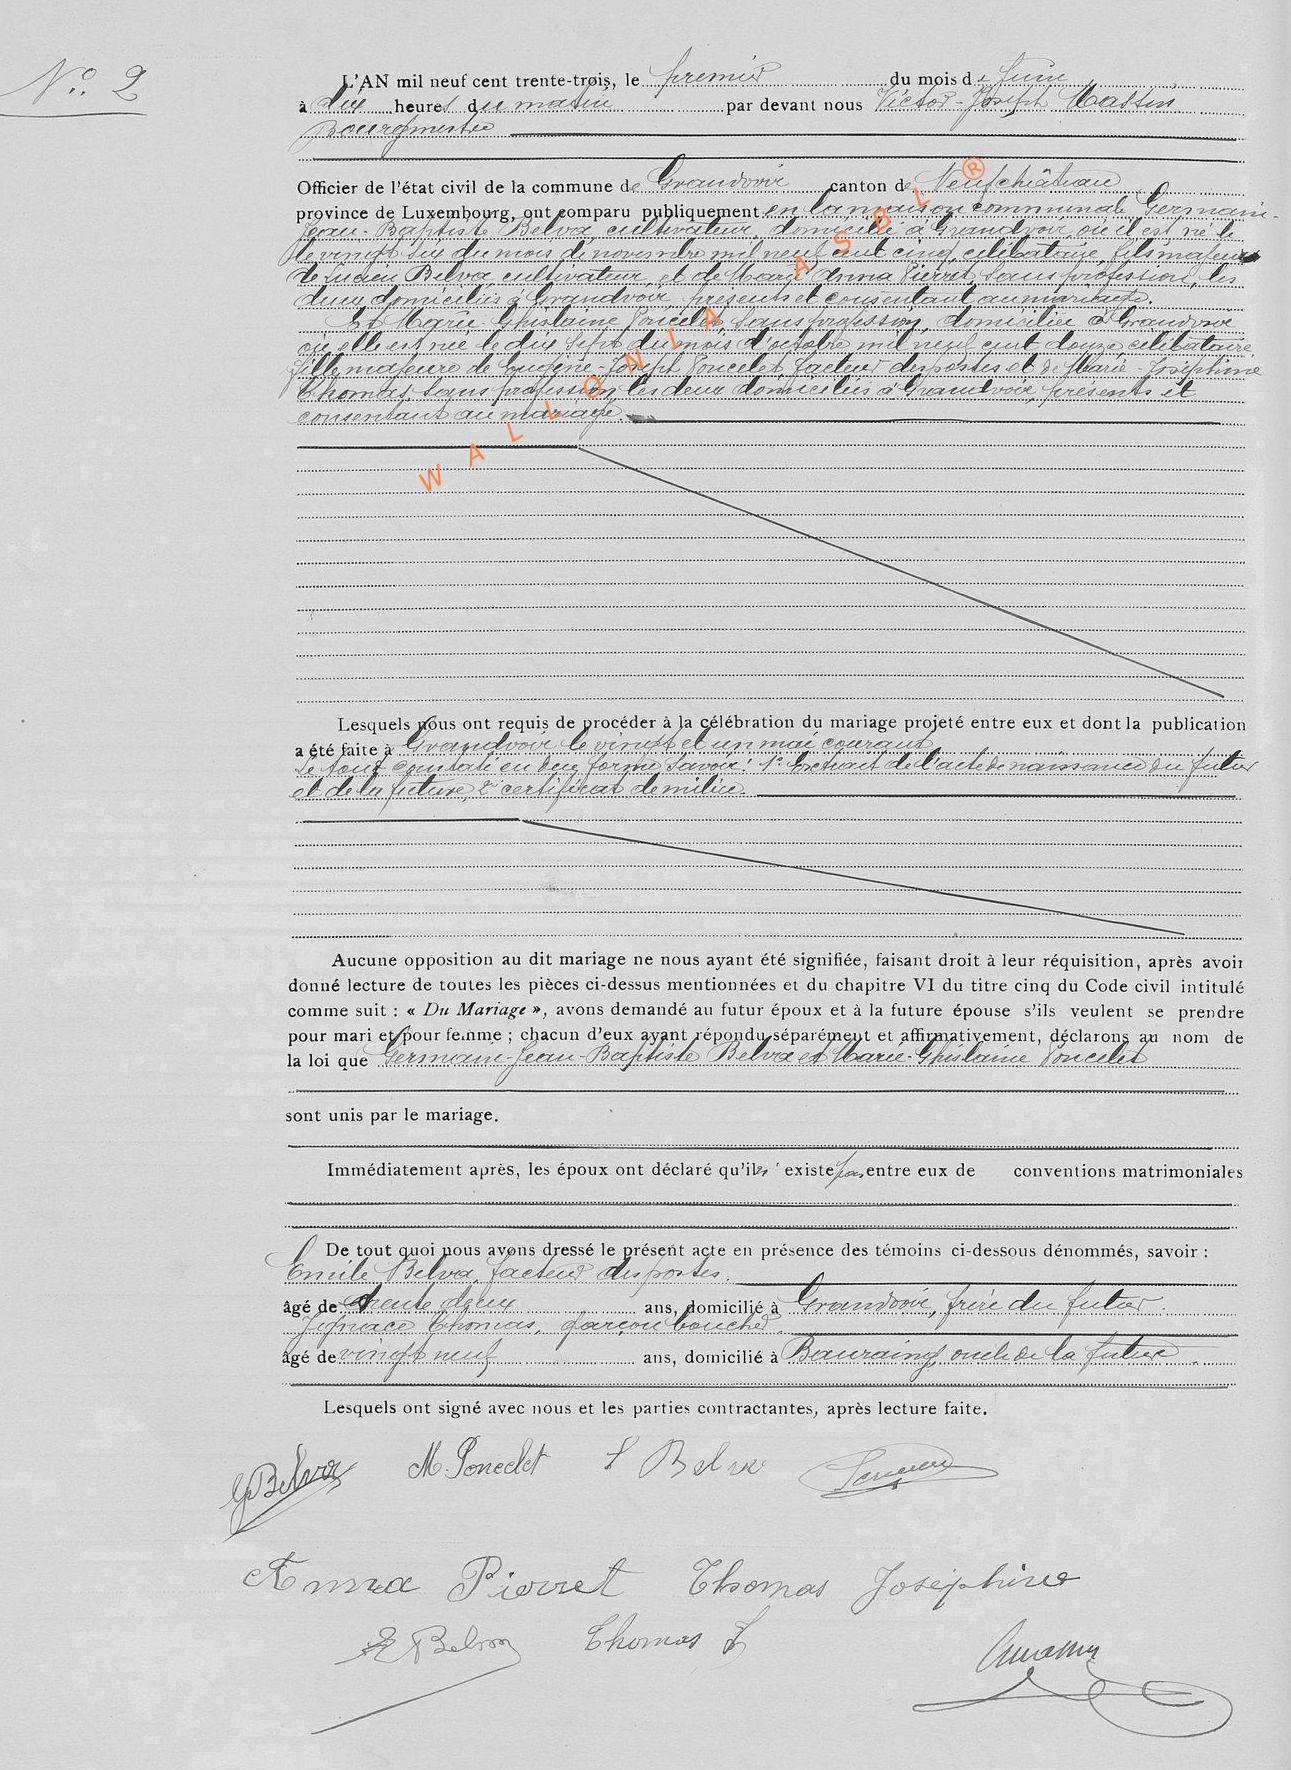 N° 2
L'AN mil neuf cent trente-trois, le premier du mois de Juin
à dix heures du matin par devant nous Victor-Joseph Massin
Bourgmestre
Officier de l'état civil de la commune de Grandvoir canton de Neufchâteau
province de Luxembourg, ont comparu publiquement en la maison communale Germain-
Jean-Baptiste Belva, cultivateur, domicilié à Grandvoir où il est né le
le vingt six du mois de novembre mil neuf cent cinq, célibataire, fils majeur
de Lucien Belva, cultivateur, et de Marie Anna Pierret, sans profession, les
deux domiciliés à Grandvoir présents et consentant au mariage.
Et Marie Ghislaine Poncelet, sans profession, domiciliée à Grandvoir
où elle est née le dix sept du mois d'octobre mil neuf cent douze célibataire
fille majeure de Eugène-Joseph Poncelet, facteur des postes et de Marie-Joséphine
Thomas, sans profession, les deux domiciliés à Grandvoir présents et
consentant au mariage.
Lesquels nous ont requis de procéder à la célébration du mariage projeté entre eux et dont la publication
a été faite à Grandvoir le vingt et un mai courant
Le tout constaté en due forme savoir: 1° Extrait de l'acte de naissance du futur
et de la future, 2° certificat de milice.
Aucune opposition au dit mariage ne nous ayant été signifiée, faisant droit à leur réquisition, après avoir
donné lecture de toutes les pièces ci-dessus mentionnées et du chapitre VI du titre cinq du Code civil intitulé
comme suit : « Du Mariage », avons demandé au futur époux et à la future épouse s'ils veulent se prendre
pour mari et pour femme ; chacun d'eux ayant répondu séparément et affirmativement, déclarons au nom de
la loi que Germain-Jean-Baptiste Belva et Marie-Ghislaine Poncelet
sont unis par le mariage.
Immédiatement après, les époux ont déclaré qu'il n'existe pas entre eux de conventions matrimoniales
De tout quoi nous avons dressé le présent acte en présence des témoins ci-dessous dénommés, savoir :
Emile Belva, facteur des postes.
âgé de trente deux ans, domicilié à Grandvoir, frère du futur.
Jignace Thomas, garçon boucher.
âgé de vingt neuf ans, domicilié à Bauraing, oncle de la future.
Lesquels ont signé avec nous et les parties contractantes, après lecture faite.
G Belva M. Poncelet L Belva
Anna Pierret Thomas Joséphine
E Belva Thomas J
WALLONIA ASBL ®